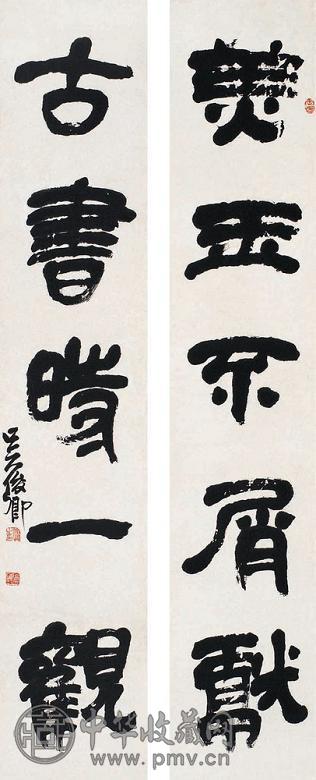 美玉不屑獻
古書時一觀
吳俊卿
中华收藏网
www.pmv.cn